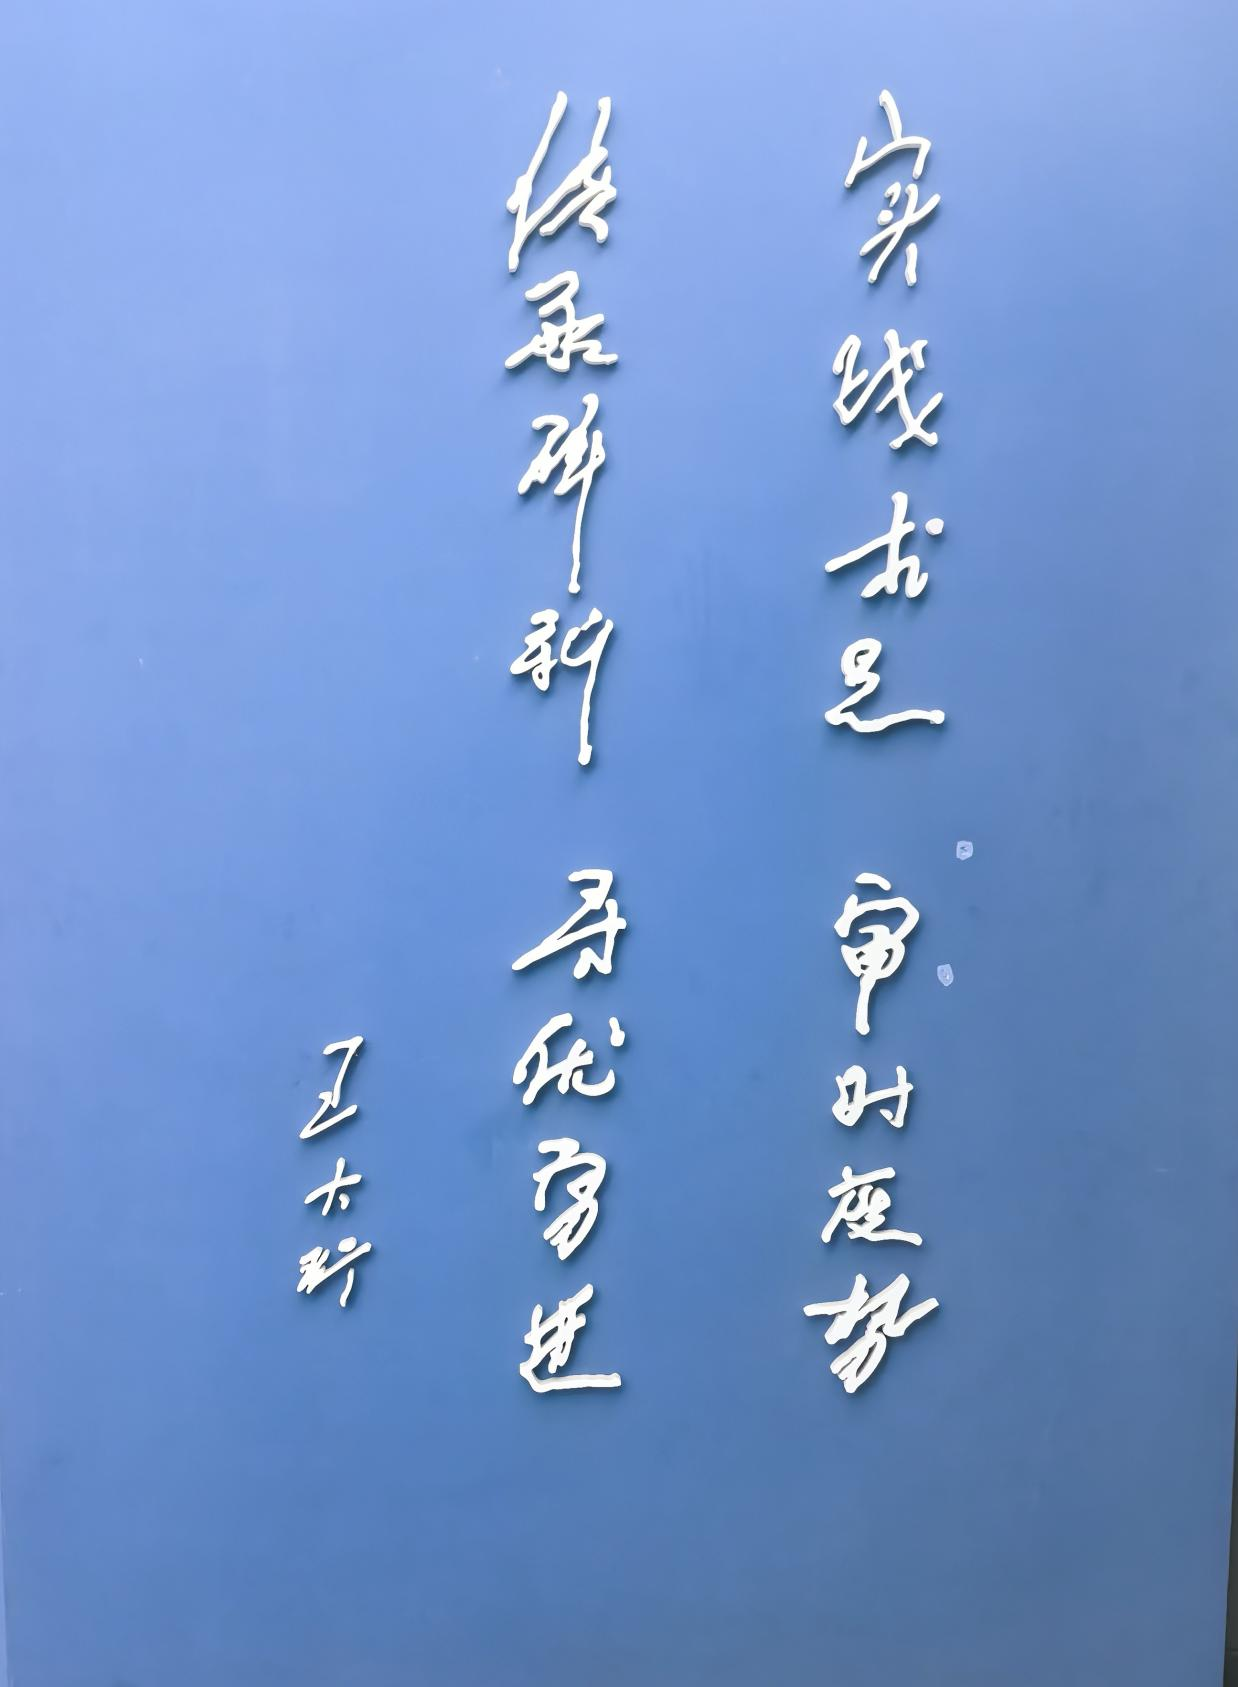 实践求是 审时度势
传承辟新 寻优勇进
王大珩